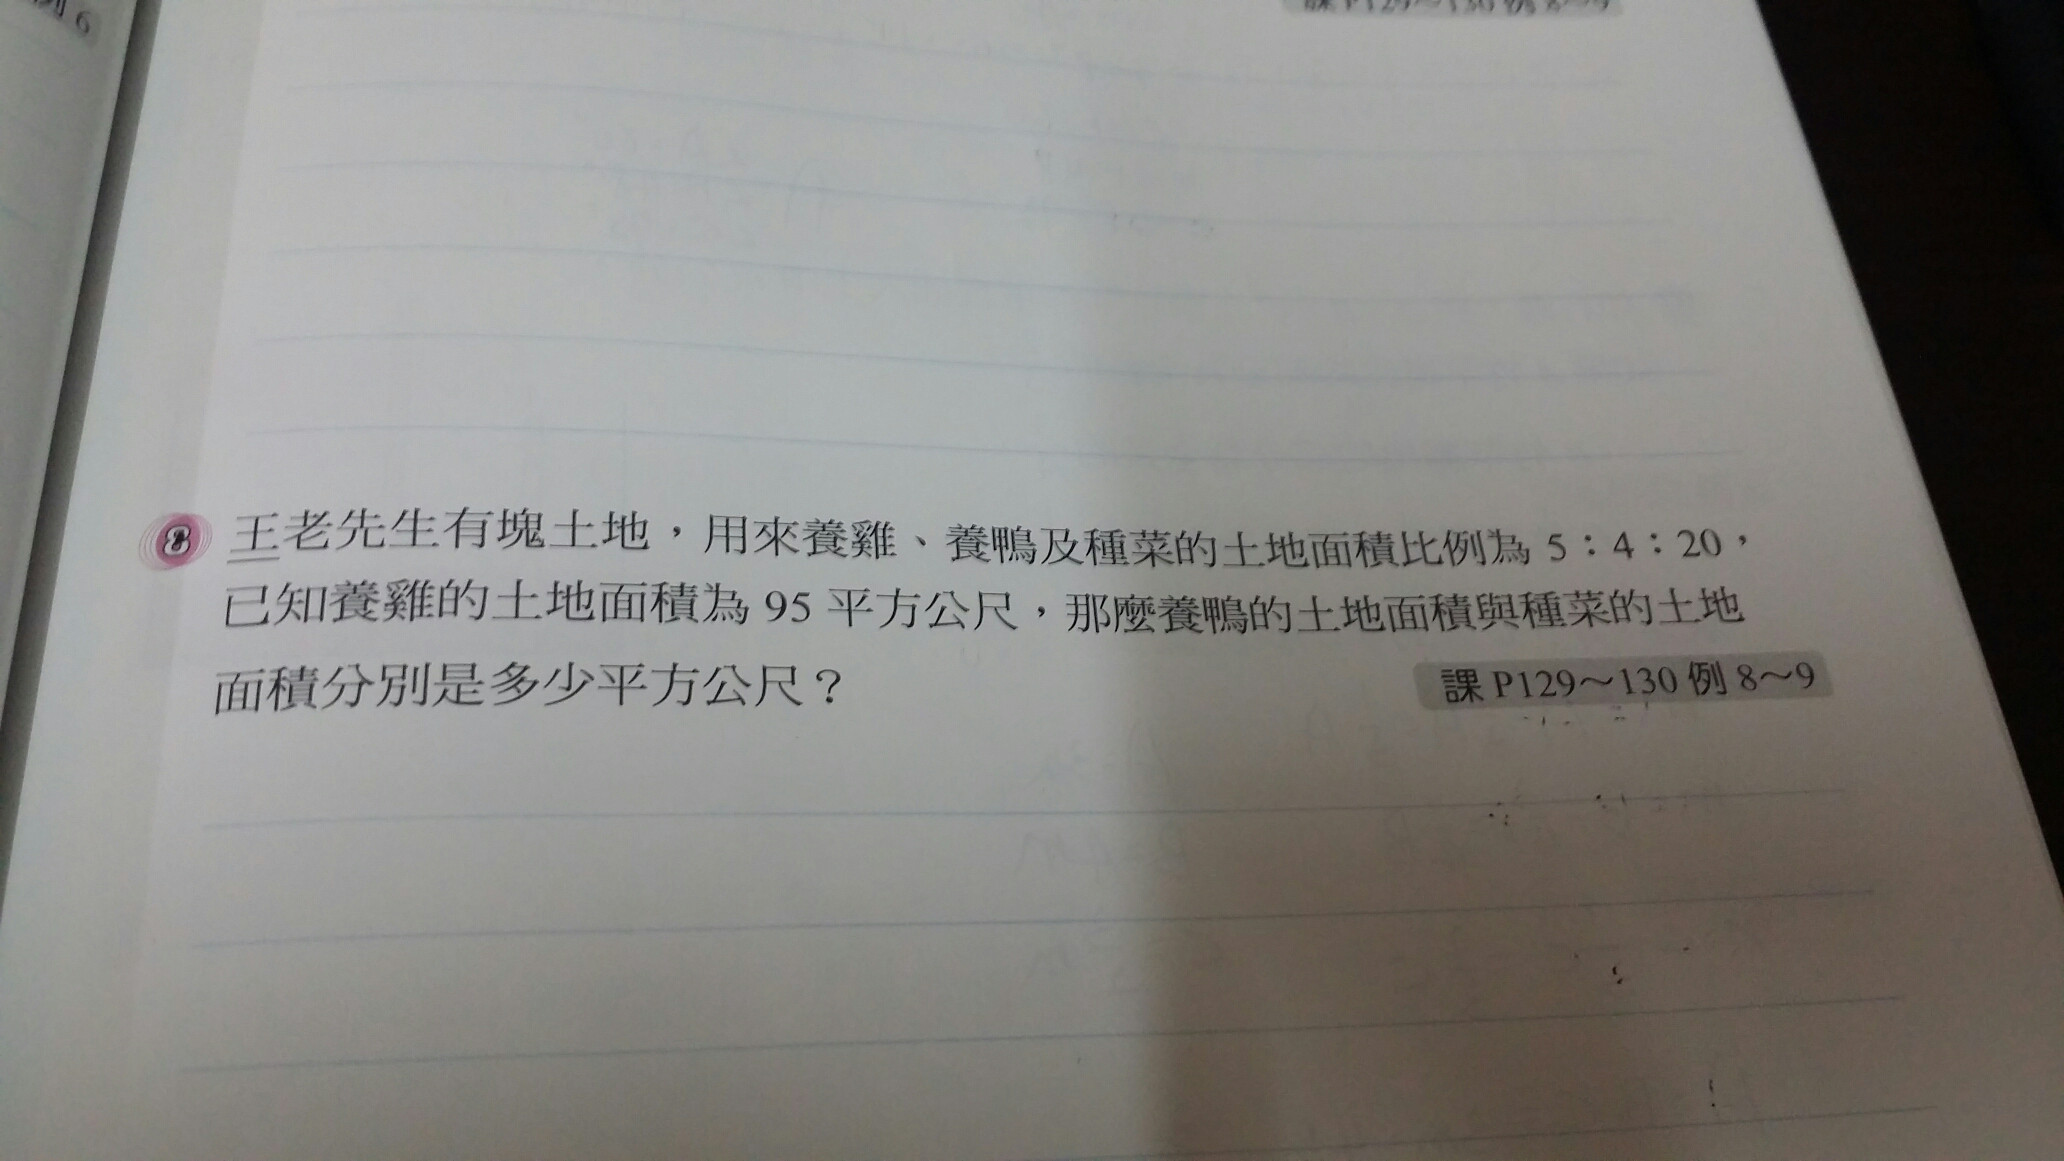 例 6
課 P129～130 例 8～9
8 王老先生有塊土地，用來養雞、養鴨及種菜的土地面積比例為 5：4：20，
已知養雞的土地面積為 95 平方公尺，那麼養鴨的土地面積與種菜的土地
面積分別是多少平方公尺？
課 P129～130 例 8～9